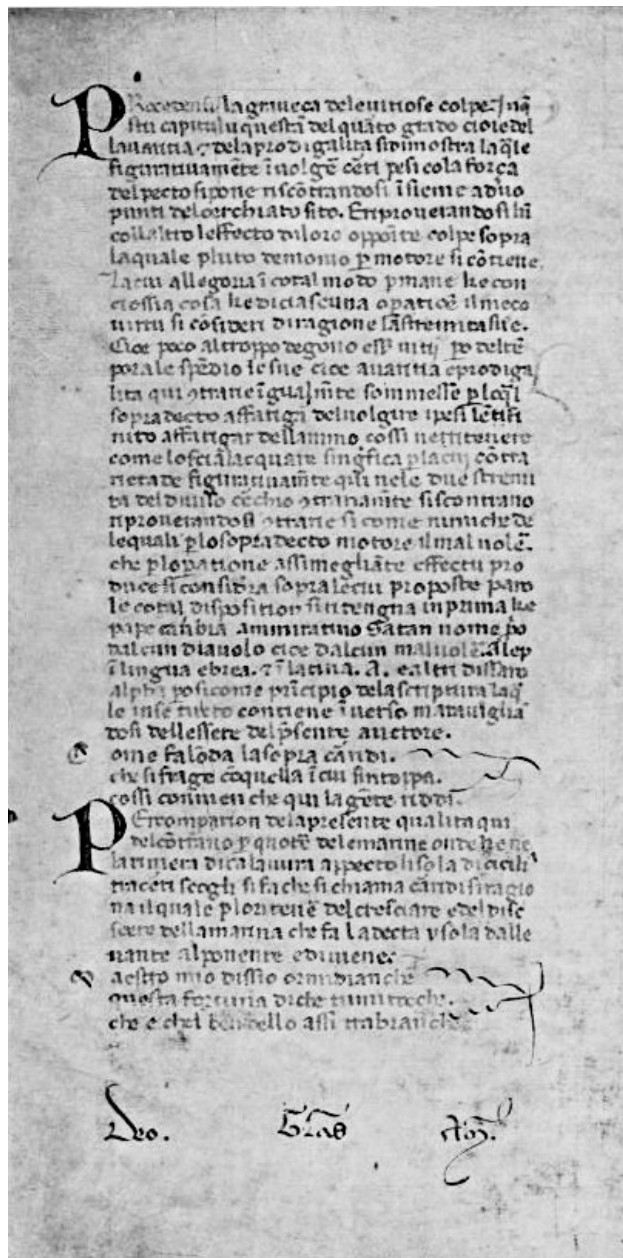 la graveça dele vitiose colpe. In q̄
sto capitulu questa del quarto grado cioie del
lavaritia ⁊ dela prodigalita si dimostra la q̄le
figurativamēte ī volgēr cērti pesi cola força
del pecto si pone riscōtrandosi īsieme a duo
punti del cerchiato sito. Et riproverandosi lū
coll altro leffecto di loro
la quale pluto demonio p̄ motore si cōtiene.
la cui allegoria ī cotal modo p̄mane ke con
ciossia cosa ke di ciascuna opatiōe il meço
virtu si cōsideri di ragione
Cioe poco al troppo degono ess̄ vitij
porale spēdio le sue cioe avaritia e prodiga
lita qui ɔtrarie īgualmēte sommesse
sopradecto affatigar del volgere i pesi
nito affatigar dellanimo cossi nel tenere
come
rieta de figurativamēte qui nele due stremi
ta del diviso cērchio ɔtrariamēte si scontrano
riproverandosi ɔtrarie si come
lequali p̄ lo sopradecto motore il mal volē.
che p̄ lopatione assimegliāte effectu pro
duce si considra sopra le cui proposte paro
le cotal disposition si ritengna in prima ke
pape cambia amirativo Satan nome p̄p̄o
dalcun diavolo cioe dalcun mal volē. Alep
ī lingua ebrea. ⁊ ī latina. A. e altri dissaro
alpha posi come prīcipio dela scriptura la q̄
le in se tucto contiene ī verso maravigliā
dosi dellessere del p̄sente auctore.
Come fa lōda la sopra cāridi.
che si frāge cō quella ī cui sintoppa.
cossi conmien che qui la gēte riddi.
Per comparation dela presente qualita qui
del
la riviera di calavura appecto lisola di cicili
si fa che si chiama cāridi
na il quale p̄ lo ritenē del cresciare e del disc
sciere della marina che fa la decta ysola dalle
vante al ponente
Maestro mio dissio or mi di anche
questa fortuna di che tu mi tocche.
che e chel ben dello assi tra branche
Deo. Gr̄as